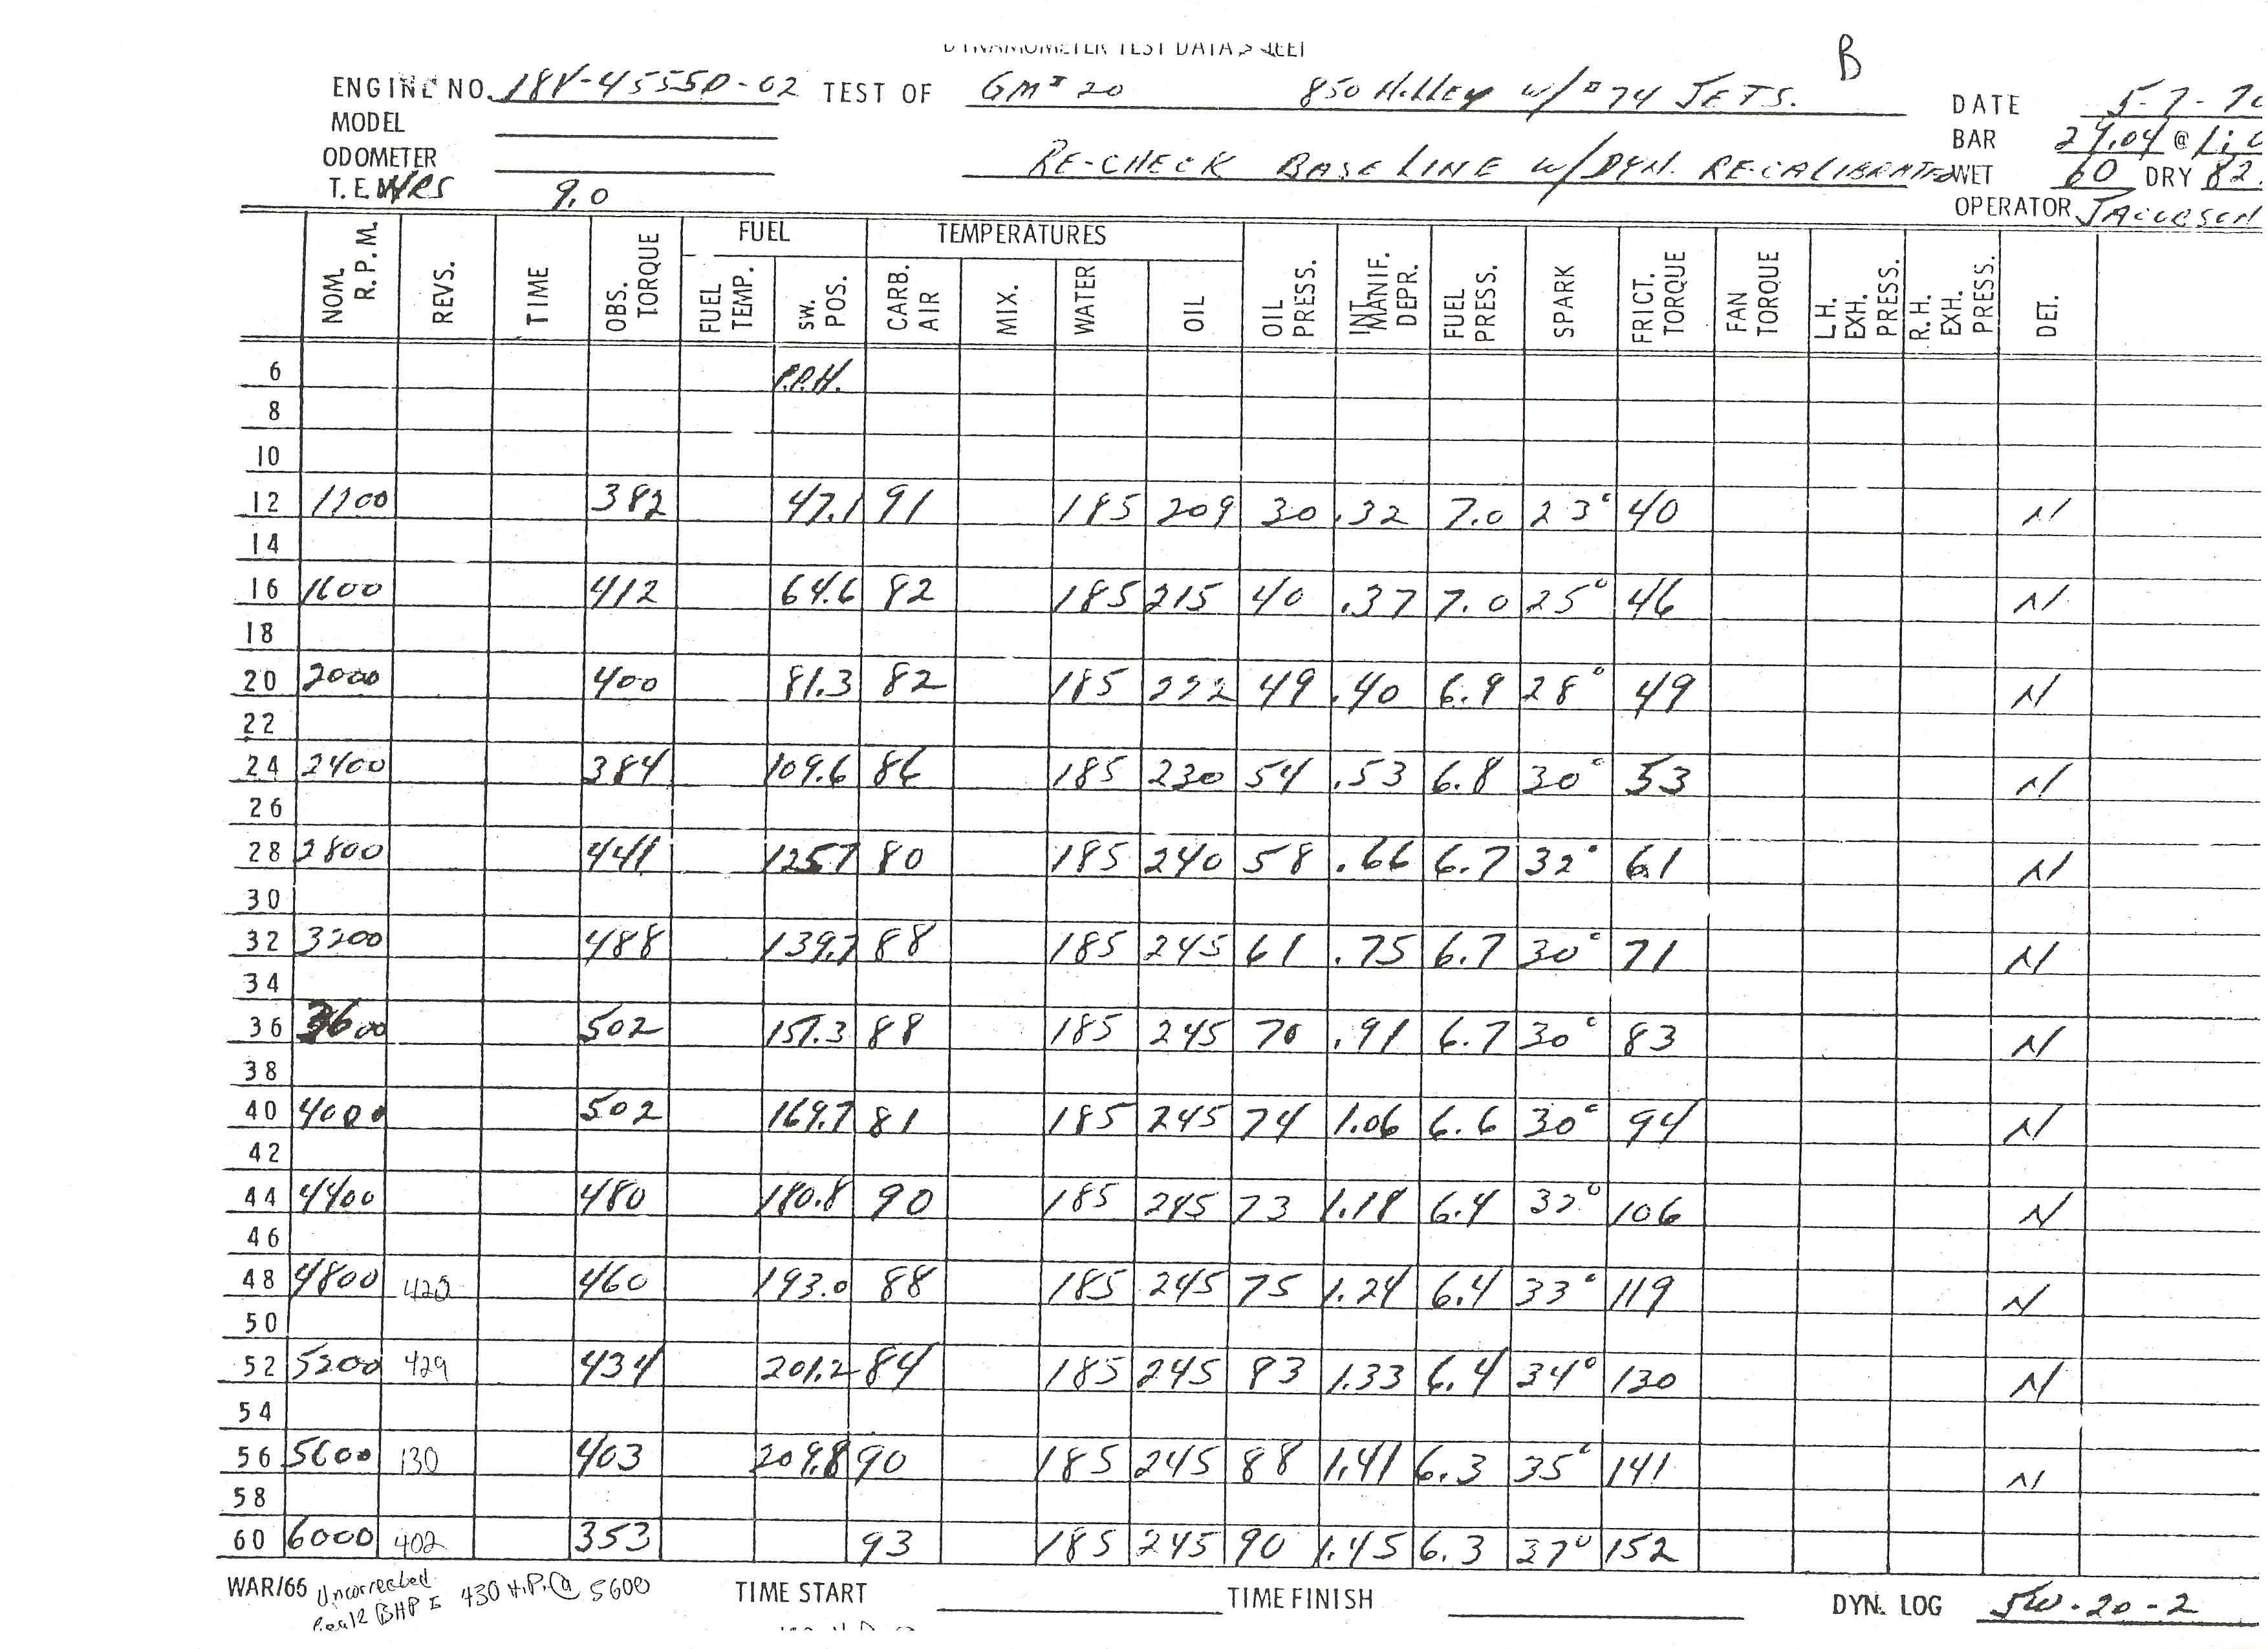 DYNAMOMETER TEST DATA SHEET
B
ENGINE NO. 18V-4555D-02 TEST OF GM# 20 850 Holley w/#74 JETS. DATE 5-7-70
MODEL BAR 29.04 @
ODOMETER RE-CHECK BASE LINE w/DYN. RE-CALIBRATED WET 60 DRY 82
T.E. HRS 9.0 OPERATOR JACOBSON
FUEL TEMPERATURES
NOM. R.P.M. REVS. TIME OBS. TORQUE FUEL TEMP. SW. POS. CARB. AIR MIX. WATER OIL OIL PRESS. INT. MANIF. DEPR. FUEL PRESS. SPARK FRICT. TORQUE FAN TORQUE L.H. EXH. PRESS. R.H. EXH. PRESS. DET.
6 P.P.H.
8
10
12 1200 382 47.1 91 185 209 30 .32 7.0 23° 40 N
14
16 1600 412 64.6 82 185 215 40 .37 7.0 25° 46 N
18
20 2000 400 81.3 82 185 222 49 .40 6.9 28° 49 N
22
24 2400 384 109.6 86 185 230 54 .53 6.8 30° 53 N
26
28 2800 441 125.7 80 185 240 58 .66 6.7 32° 61 N
30
32 3200 488 139.7 88 185 245 61 .75 6.7 30° 71 N
34
36 3600 502 157.3 88 185 245 70 .91 6.7 30° 83 N
38
40 4000 502 169.7 81 185 245 74 1.06 6.6 30° 94 N
42
44 4400 480 180.8 90 185 245 73 1.18 6.4 32° 106 N
46
48 4800 420 460 193.0 88 185 245 75 1.24 6.4 33° 119 N
50
52 5200 429 434 201.2 84 185 245 83 1.33 6.4 34° 130 N
54
56 5600 130 403 209.8 90 185 245 88 1.41 6.3 35° 141 N
58
60 6000 402 353 93 185 245 90 1.45 6.3 37° 152
WAR/66 Uncorrected TIME START TIME FINISH DYN. LOG SW-20-2
BHP = 430 H.P. @ 5600